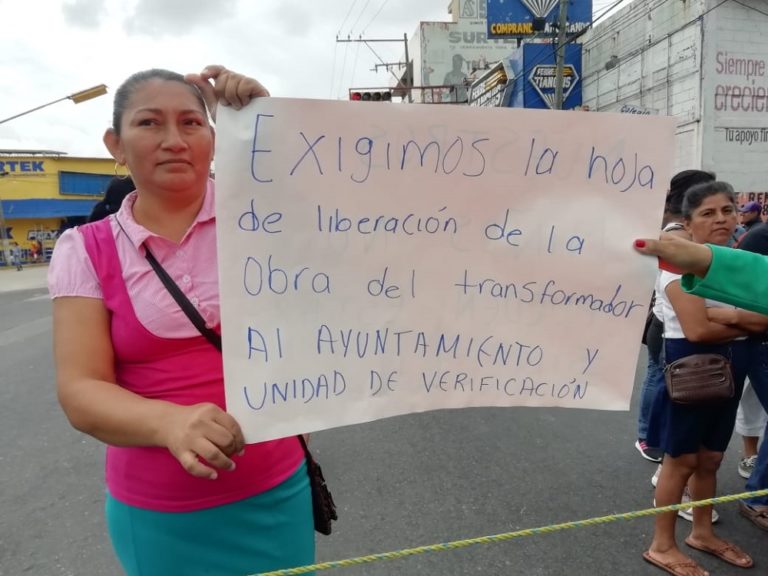 SURTEK
COMPRANDO
FERRE
TIANGUIS
Siempre
crecien
Tu apoyo fi
RTEK
Exigimos la hoja
de liberación de la
Obra del transformador
Al AYUNTAMIENTO y
UNIDAD DE VERIFICACIÓN